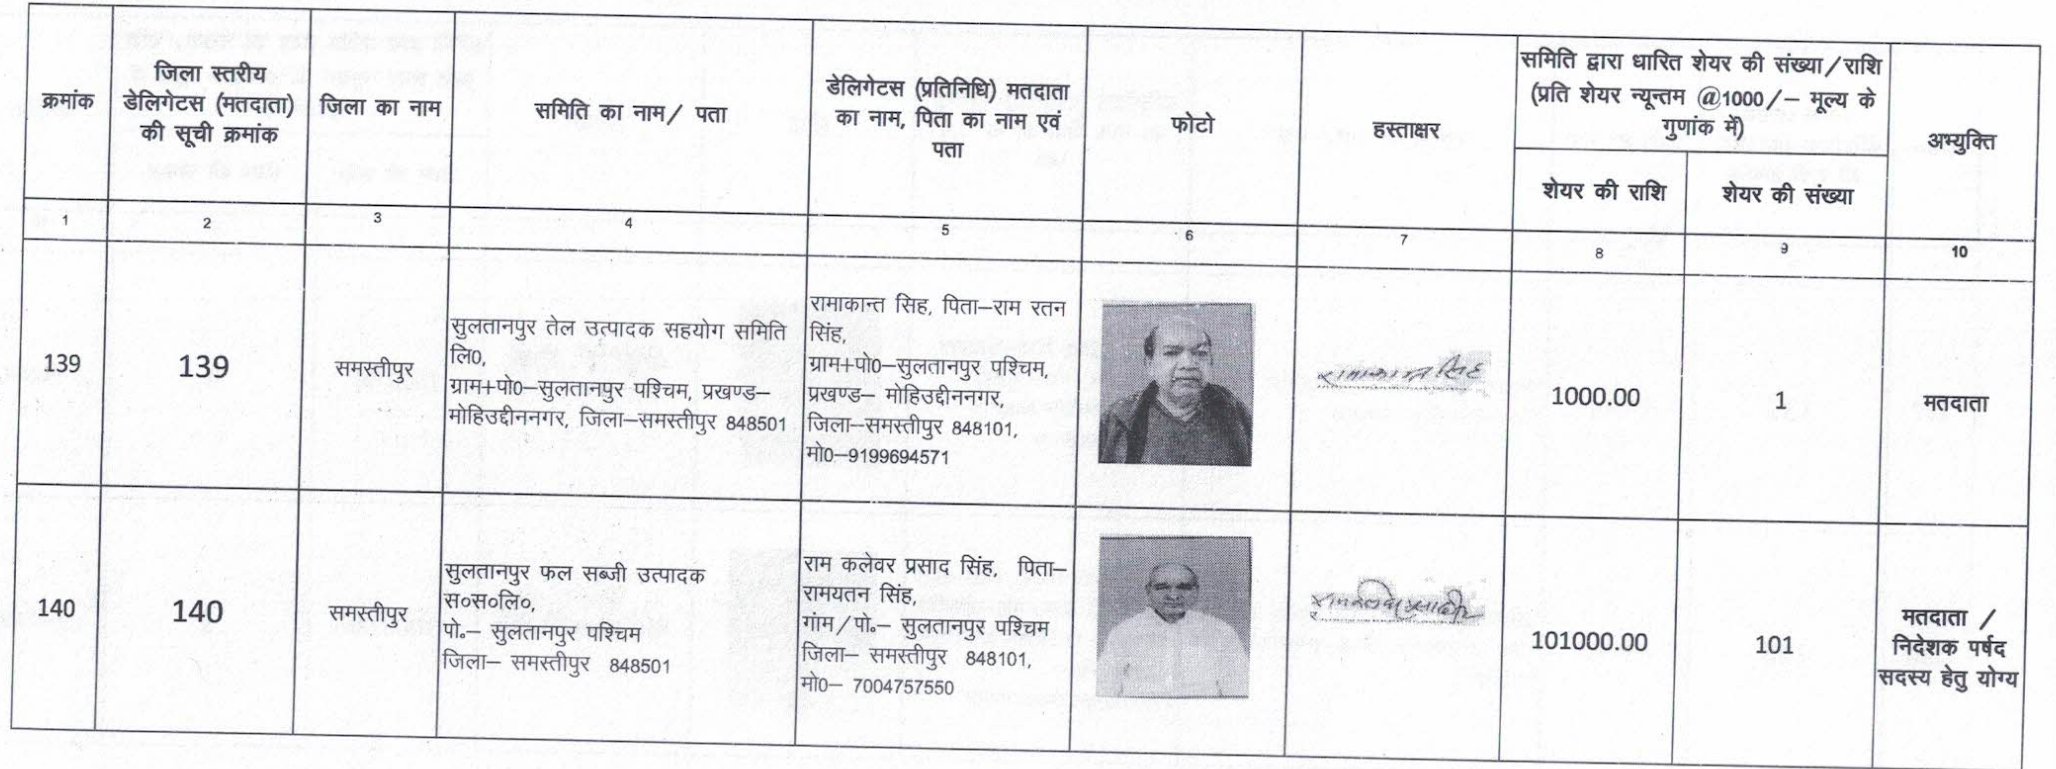 क्रमांक
जिला स्तरीय
डेलिगेटस (मतदाता)
की सूची क्रमांक
जिला का नाम
समिति का नाम/ पता
डेलिगेटस (प्रतिनिधि) मतदाता
का नाम, पिता का नाम एवं
पता
फोटो
हस्ताक्षर
समिति द्वारा धारित शेयर की संख्या/राशि
(प्रति शेयर न्यूनतम @1000/– मूल्य के
गुणांक में)
शेयर की राशि
शेयर की संख्या
अभ्युक्ति
1
2
3
4
5
6
7
8
9
10
139
139
समस्तीपुर
सुलतानपुर तेल उत्पादक सहयोग समिति
लि0,
ग्राम+पो0–सुलतानपुर पश्चिम, प्रखण्ड–
मोहिउद्दीननगर, जिला–समस्तीपुर 848501
रामाकान्त सिह, पिता–राम रतन
सिंह,
ग्राम+पो0–सुलतानपुर पश्चिम,
प्रखण्ड– मोहिउद्दीननगर,
जिला–समस्तीपुर 848101,
मो0–9199694571
रामाकान्त सिंह
1000.00
1
मतदाता
140
140
समस्तीपुर
सुलतानपुर फल सब्जी उत्पादक
स०स०लि०,
पो.– सुलतानपुर पश्चिम
जिला– समस्तीपुर 848501
राम कलेवर प्रसाद सिंह, पिता–
रामयतन सिंह,
गांम/पो.– सुलतानपुर पश्चिम
जिला– समस्तीपुर 848101,
मो0– 7004757550
101000.00
101
मतदाता /
निदेशक पर्षद
सदस्य हेतु योग्य